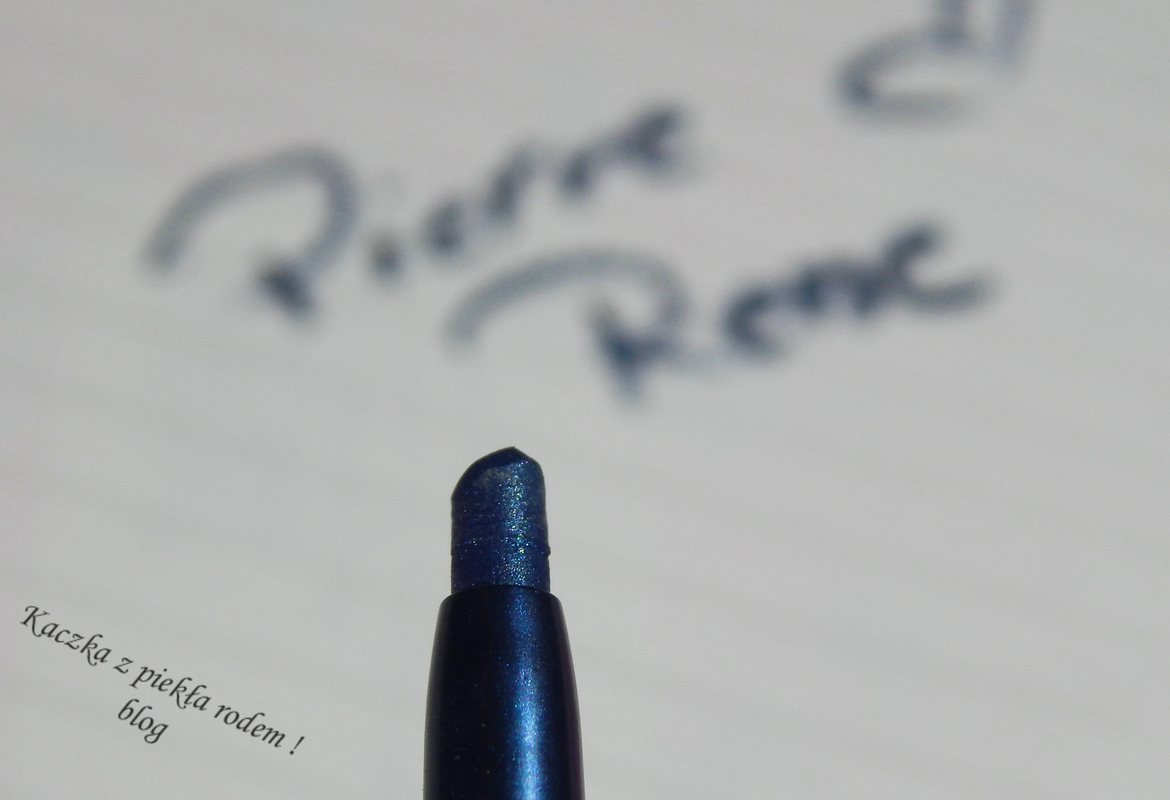 Pierre
Rene
Kaczka z piekła rodem !
blog